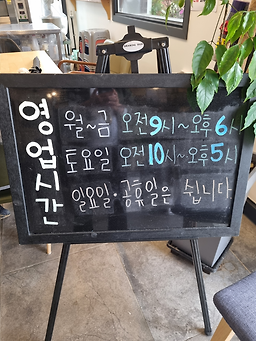 영업시간
월~금 오전9시~오후6시
토요일 오전10시~오후5시
일요일·공휴일은 쉽니다